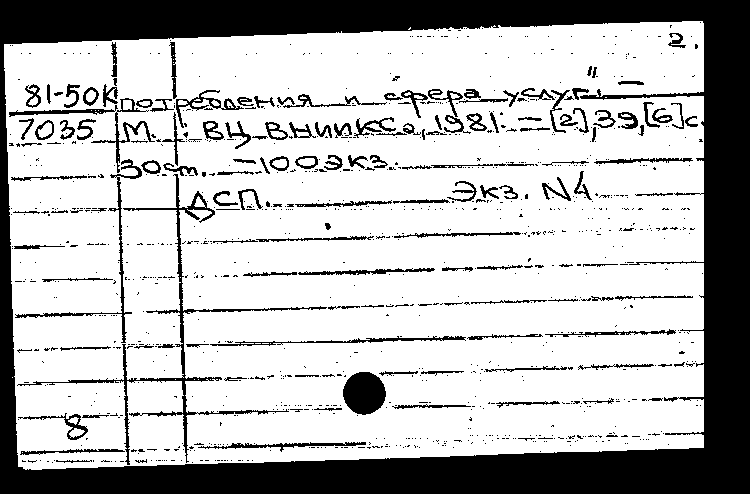 2.
81-50К потребления и сфера услуг". —
7035 М. : ВЦ ВНИИКС, 1981. — [2], 39, [6] с.
30 см. — 100 экз.
ДСП. Экз. N4
8